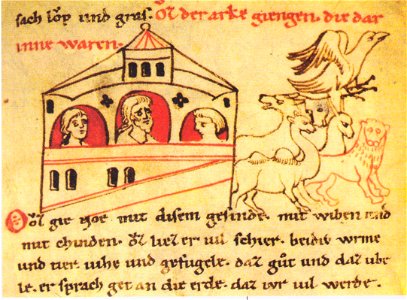 sach lǒp und gras. Ǒz der arke giengen. die dar
inne waren.
Ǒz gie noe mit disem gesinde. mit wiben und
mit chinden. ǒz liez er vil schier. beidiv wrme
und tier. vihe und gefugele. daz gůt und daz ube
le. er sprach get an die erde. daz iwr vil werde.